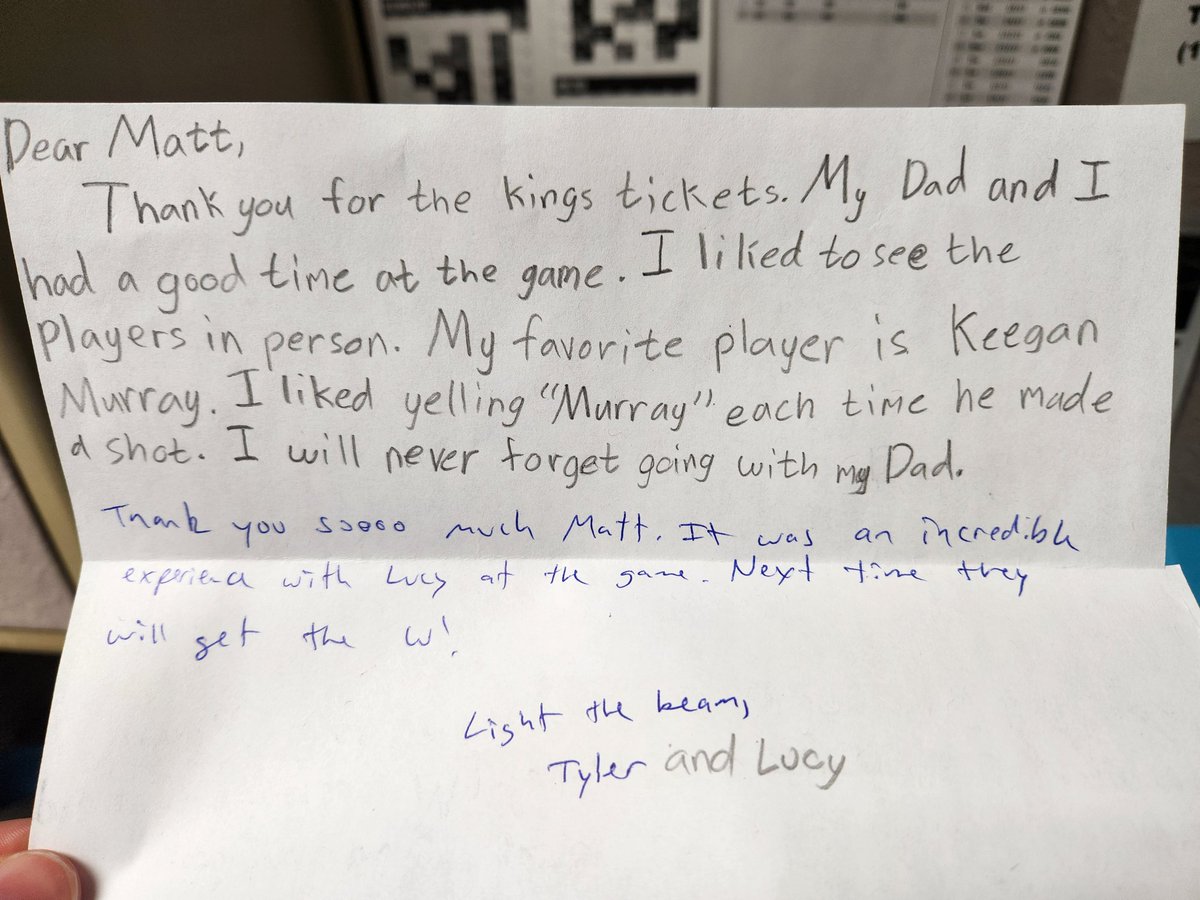 Dear Matt,
Thank you for the kings tickets. My Dad and I
had a good time at the game. I liked to see the
players in person. My favorite player is Keegan
Murray. I liked yelling "Murray" each time he made
a shot. I will never forget going with my Dad.
Thank you soooo much Matt. It was an incredible
experience with Lucy at the game. Next time they
will get the W!
Light the beam,
Tyler and Lucy